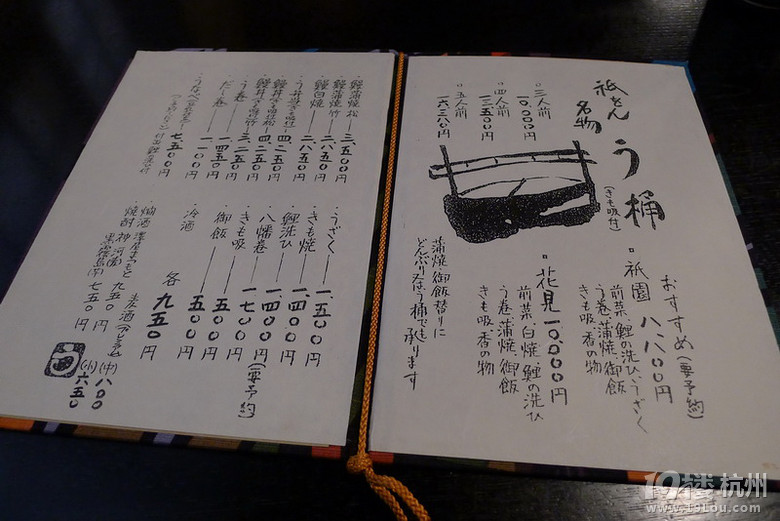 祇をん
名物
う桶
(きも吸付)
三人前
一〇.〇〇〇円
四人前
一三.五〇〇円
五人前
一六.三八〇円
おすすめ(要予約)
祇園 八.八〇〇円
前菜、鯉の洗ひ、うざく
う巻、蒲焼、御飯
きも吸、香の物
花見 一〇.〇〇〇円
前菜、白焼、鯉の洗ひ
う巻、蒲焼、御飯
きも吸、香の物
蒲焼、御飯替りに
どんぶり又はう桶でも
承ります
鰻蒲焼 松 三.五〇〇円
鰻蒲焼 竹 二.八五〇円
鰻白焼 二.八五〇円
う丼(きも吸付) 四.二五〇円
鰻丼(きも吸付)松 四.二五〇円
鰻丼(きも吸付)竹 三.二五〇円
う巻 一.四五〇円
だし巻 一.一〇〇円
七.五〇〇円
うざく 一.五〇〇円
きも焼 一.四〇〇円
鯉洗ひ 一.四〇〇円
八幡巻 一.七〇〇円(要予約)
きも吸 五〇〇円
御飯 五〇〇円
冷酒 各 九五〇円
燗酒 澤屋まつもと 九五〇円
焼酎
黒霧島 七五〇円
麦酒
(中)八〇〇
(小)六五〇
19楼 杭州
www.19Lou.com